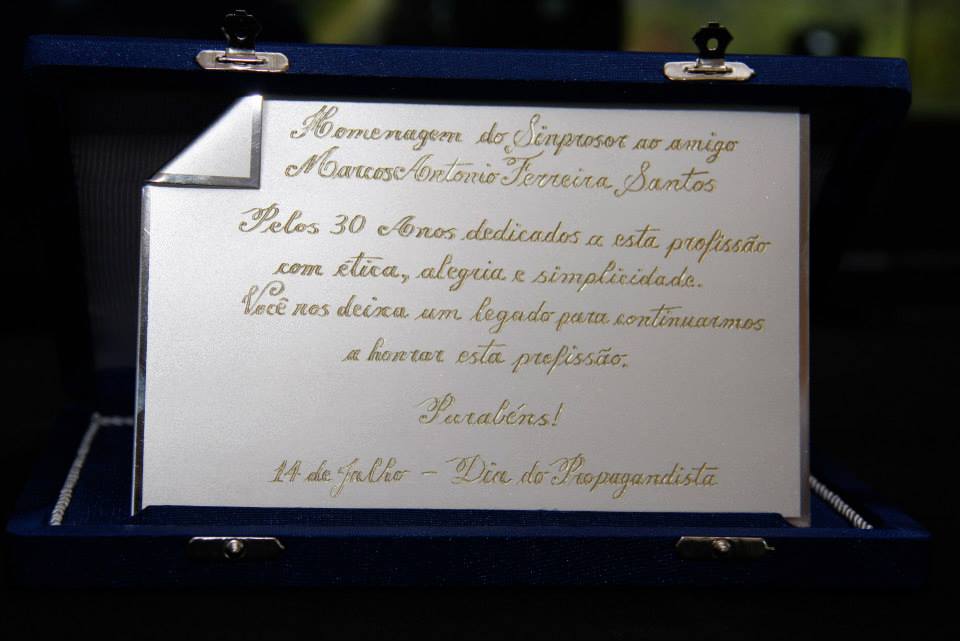 Homenagem do Sinprosor ao amigo
Marcos Antonio Ferreira Santos
Pelos 30 Anos dedicados a esta profissão
com ética, alegria e simplicidade.
Você nos deixa um legado para continuarmos
a honrar esta profissão.
Parabéns!
14 de Julho - Dia do Propagandista